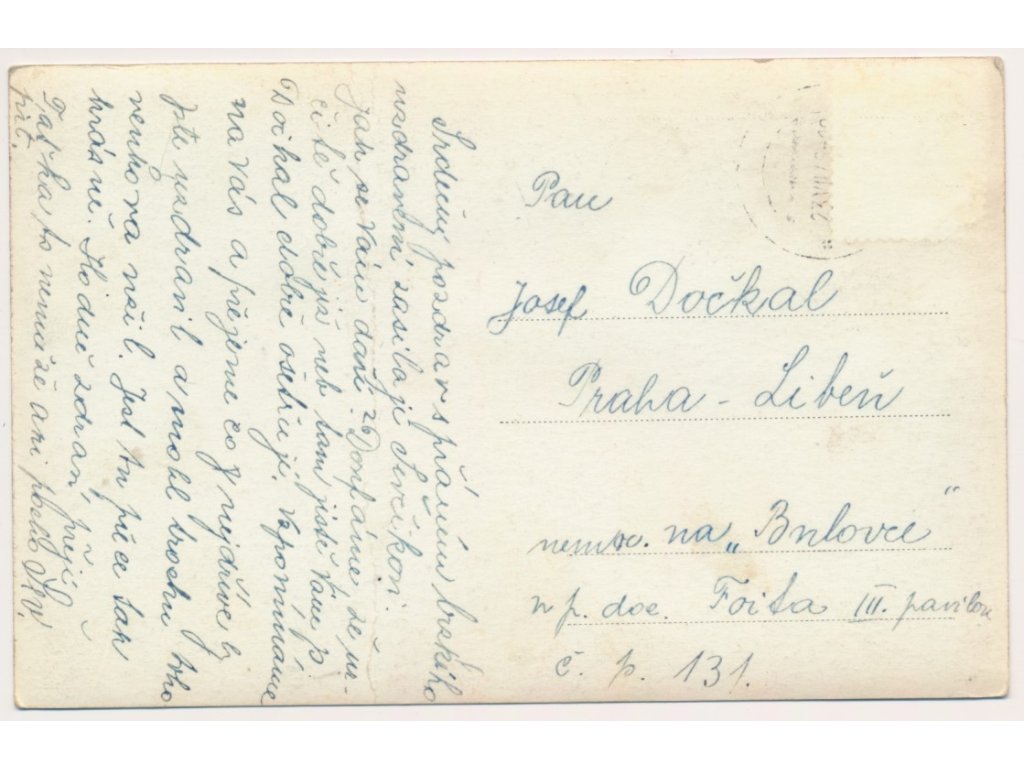 Srdečný pozdrav s přáním brzkého
uzdravení zasílají Ševčíkovi.
Jak se Vám daří? Doufáme že ur-
čitě dobře již neb tam jistě Vám p.
Dočkal dobře ošetřují. Vzpomínáme
na Vás a přejeme co nejdříve by
jste uzdravil a mohl trochu toho
venkova užil. Jest tu přece tak
krásně. Hodně zdraví přejí Š
Taťka to nemůže ani
pít.
Pan
Josef Dočkal
Praha - Libeň
nemoc. na „Bulovce“
u p. doc. Foita III. pavilon
č. p. 131.